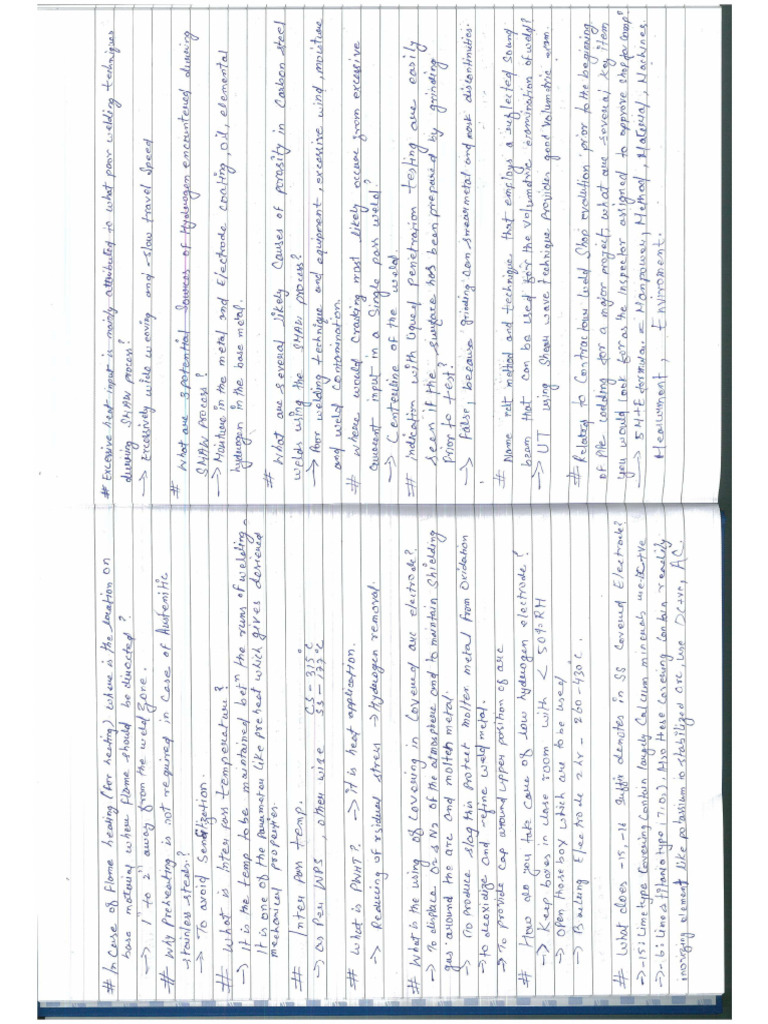 # In Case of Flame heating (for heating) where is the location on
base material where flame should be directed?
→ 1" to 2" away from the weld zone.
# Why Preheating is not required in case of Austenitic
stainless steels?
→ To avoid Sensitization.
# What is Inter pass temperature?
→ It is the temp to be maintained betn the runs of welding.
It is one of the parameter like preheat which gives desiered
mechanical properties.
# Inter pass temp.
→ as Per WPS, other wise CS - 315°c
SS - 177°c
# What is PWHT? → it is heat application.
→ Reducing of residual stress → Hydrogen removal.
# What is the using of Covering in Covered arc electrode?
→ To displace O2 & N2 of the atmosphere and to maintain Shielding
gas around the arc and molten metal.
→ To produce slag this protect molten metal from Oxidation
→ to deoxidize and refine weld metal.
→ To provide cap around upper position of arc
# How do you take care of low hydrogen electrode?
→ Keep boxes in close room with < 50% RH
→ Open those box which are to be used
→ Baking Electrode 2 hr - 260 - 430°c.
# What does -15, -16 suffix denotes in SS Covered Electrode?
→ -15: Lime type Covering Contain largely Calcium minerals
→ -16: Lines titania type Also these Covering Contain readily
ionizing element like potassium to stabilized arc, use DCave, AC.
# Excessive heat input is mainly attributed to what poor welding techniques
during SMAW process?
→ Excessively wide weaving and -slow travel speed
# What are 3 potential Sources of Hydrogen encountered during
SMAW process?
→ Moisture in the metal and Electrode coating, oil, elemental
hydrogen in the base metal.
# What are several likely Causes of porosity in Carbon steel
welds using the SMAW process?
→ Poor welding technique and equipment, excessive wind, moisture
and weld contamination.
# where would Cracking most likely occure from excessive
Current input in a Single pass weld?
→ Centerline of the weld.
# indication with liqued penetration testing are easily
seen if the surface has been prepared by grinding
Prior to test?
→ False, because grinding can smear metal and mask discontinuities.
# Name ndt method and technique that employs a reflected sound
beam that can be used for the volumetric examination of weld?
→ UT using Shear wave technique provides good Volumetric exam.
# Relating to Contractors weld Shop evolution prior to the beginning
of pipe welding for a major project, what are several key item
you would look for as the inspector assigned to approve shop for comp?
→ 5M+E formula. = Manpower, Method, Material, Machines,
Measurment, Enviroment.